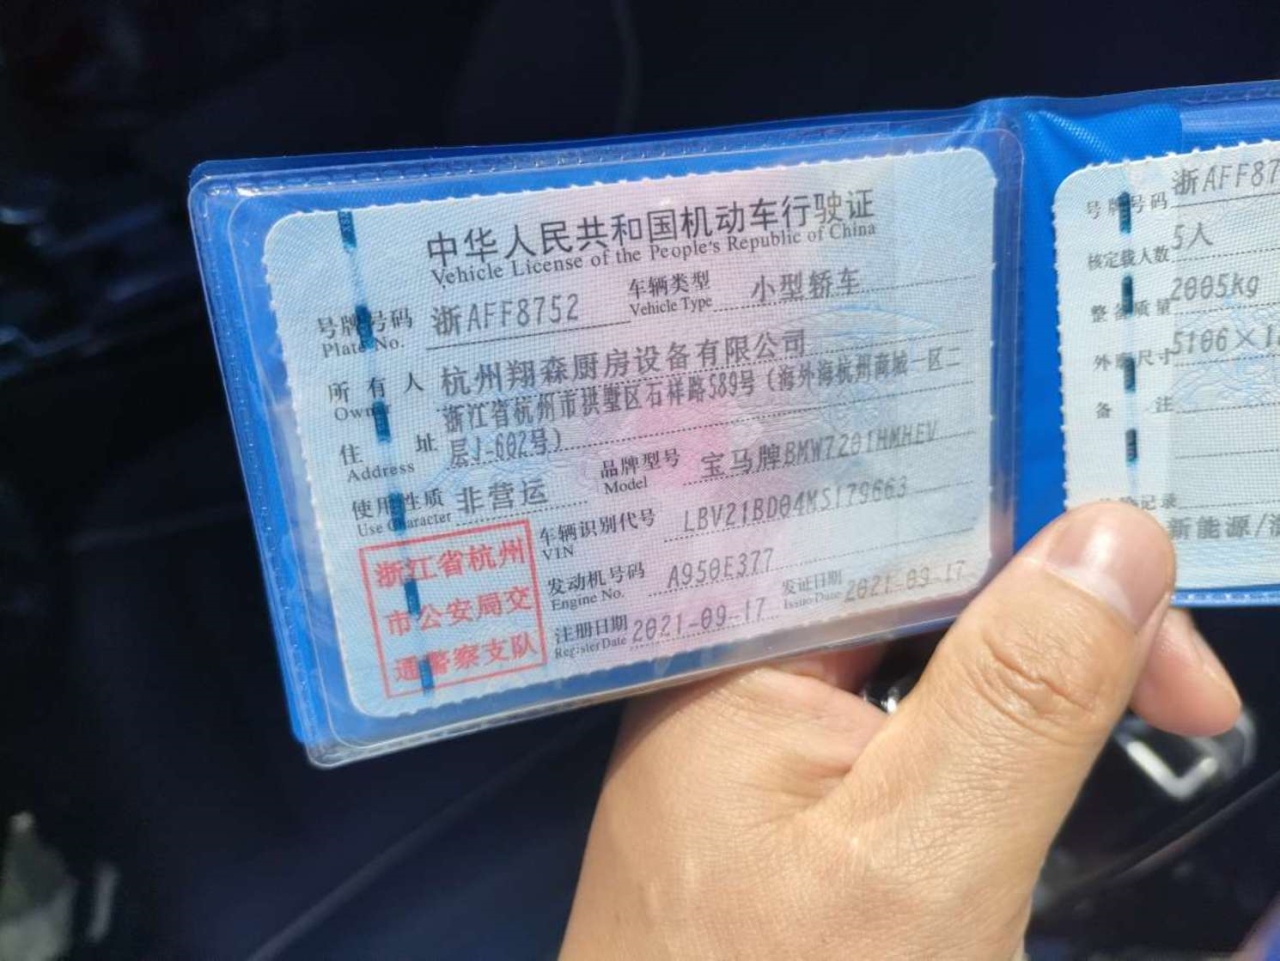 中华人民共和国机动车行驶证
Vehicle License of the People's Republic of China
号牌号码 浙AFF8752 车辆类型 小型轿车
Plate No. Vehicle Type
所有人 杭州翔森厨房设备有限公司
Owner
浙江省杭州市拱墅区石祥路589号（海外海杭州商城一区二
住址 层J-602号）
Address
使用性质 非营运 品牌型号 宝马牌BMW7201HMHEV
Use Character Model
车辆识别代号 LBV21BD04MS179663
VIN
发动机号码 A950E377 发证日期 2021-09-17
Engine No. Issue Date
注册日期 2021-09-17
Register Date
浙江省杭州
市公安局交
通警察支队
号牌号码 浙AFF87
核定载人数 5人
整备质量 2005kg
外廓尺寸 5106×1
备注
记录
新能源/